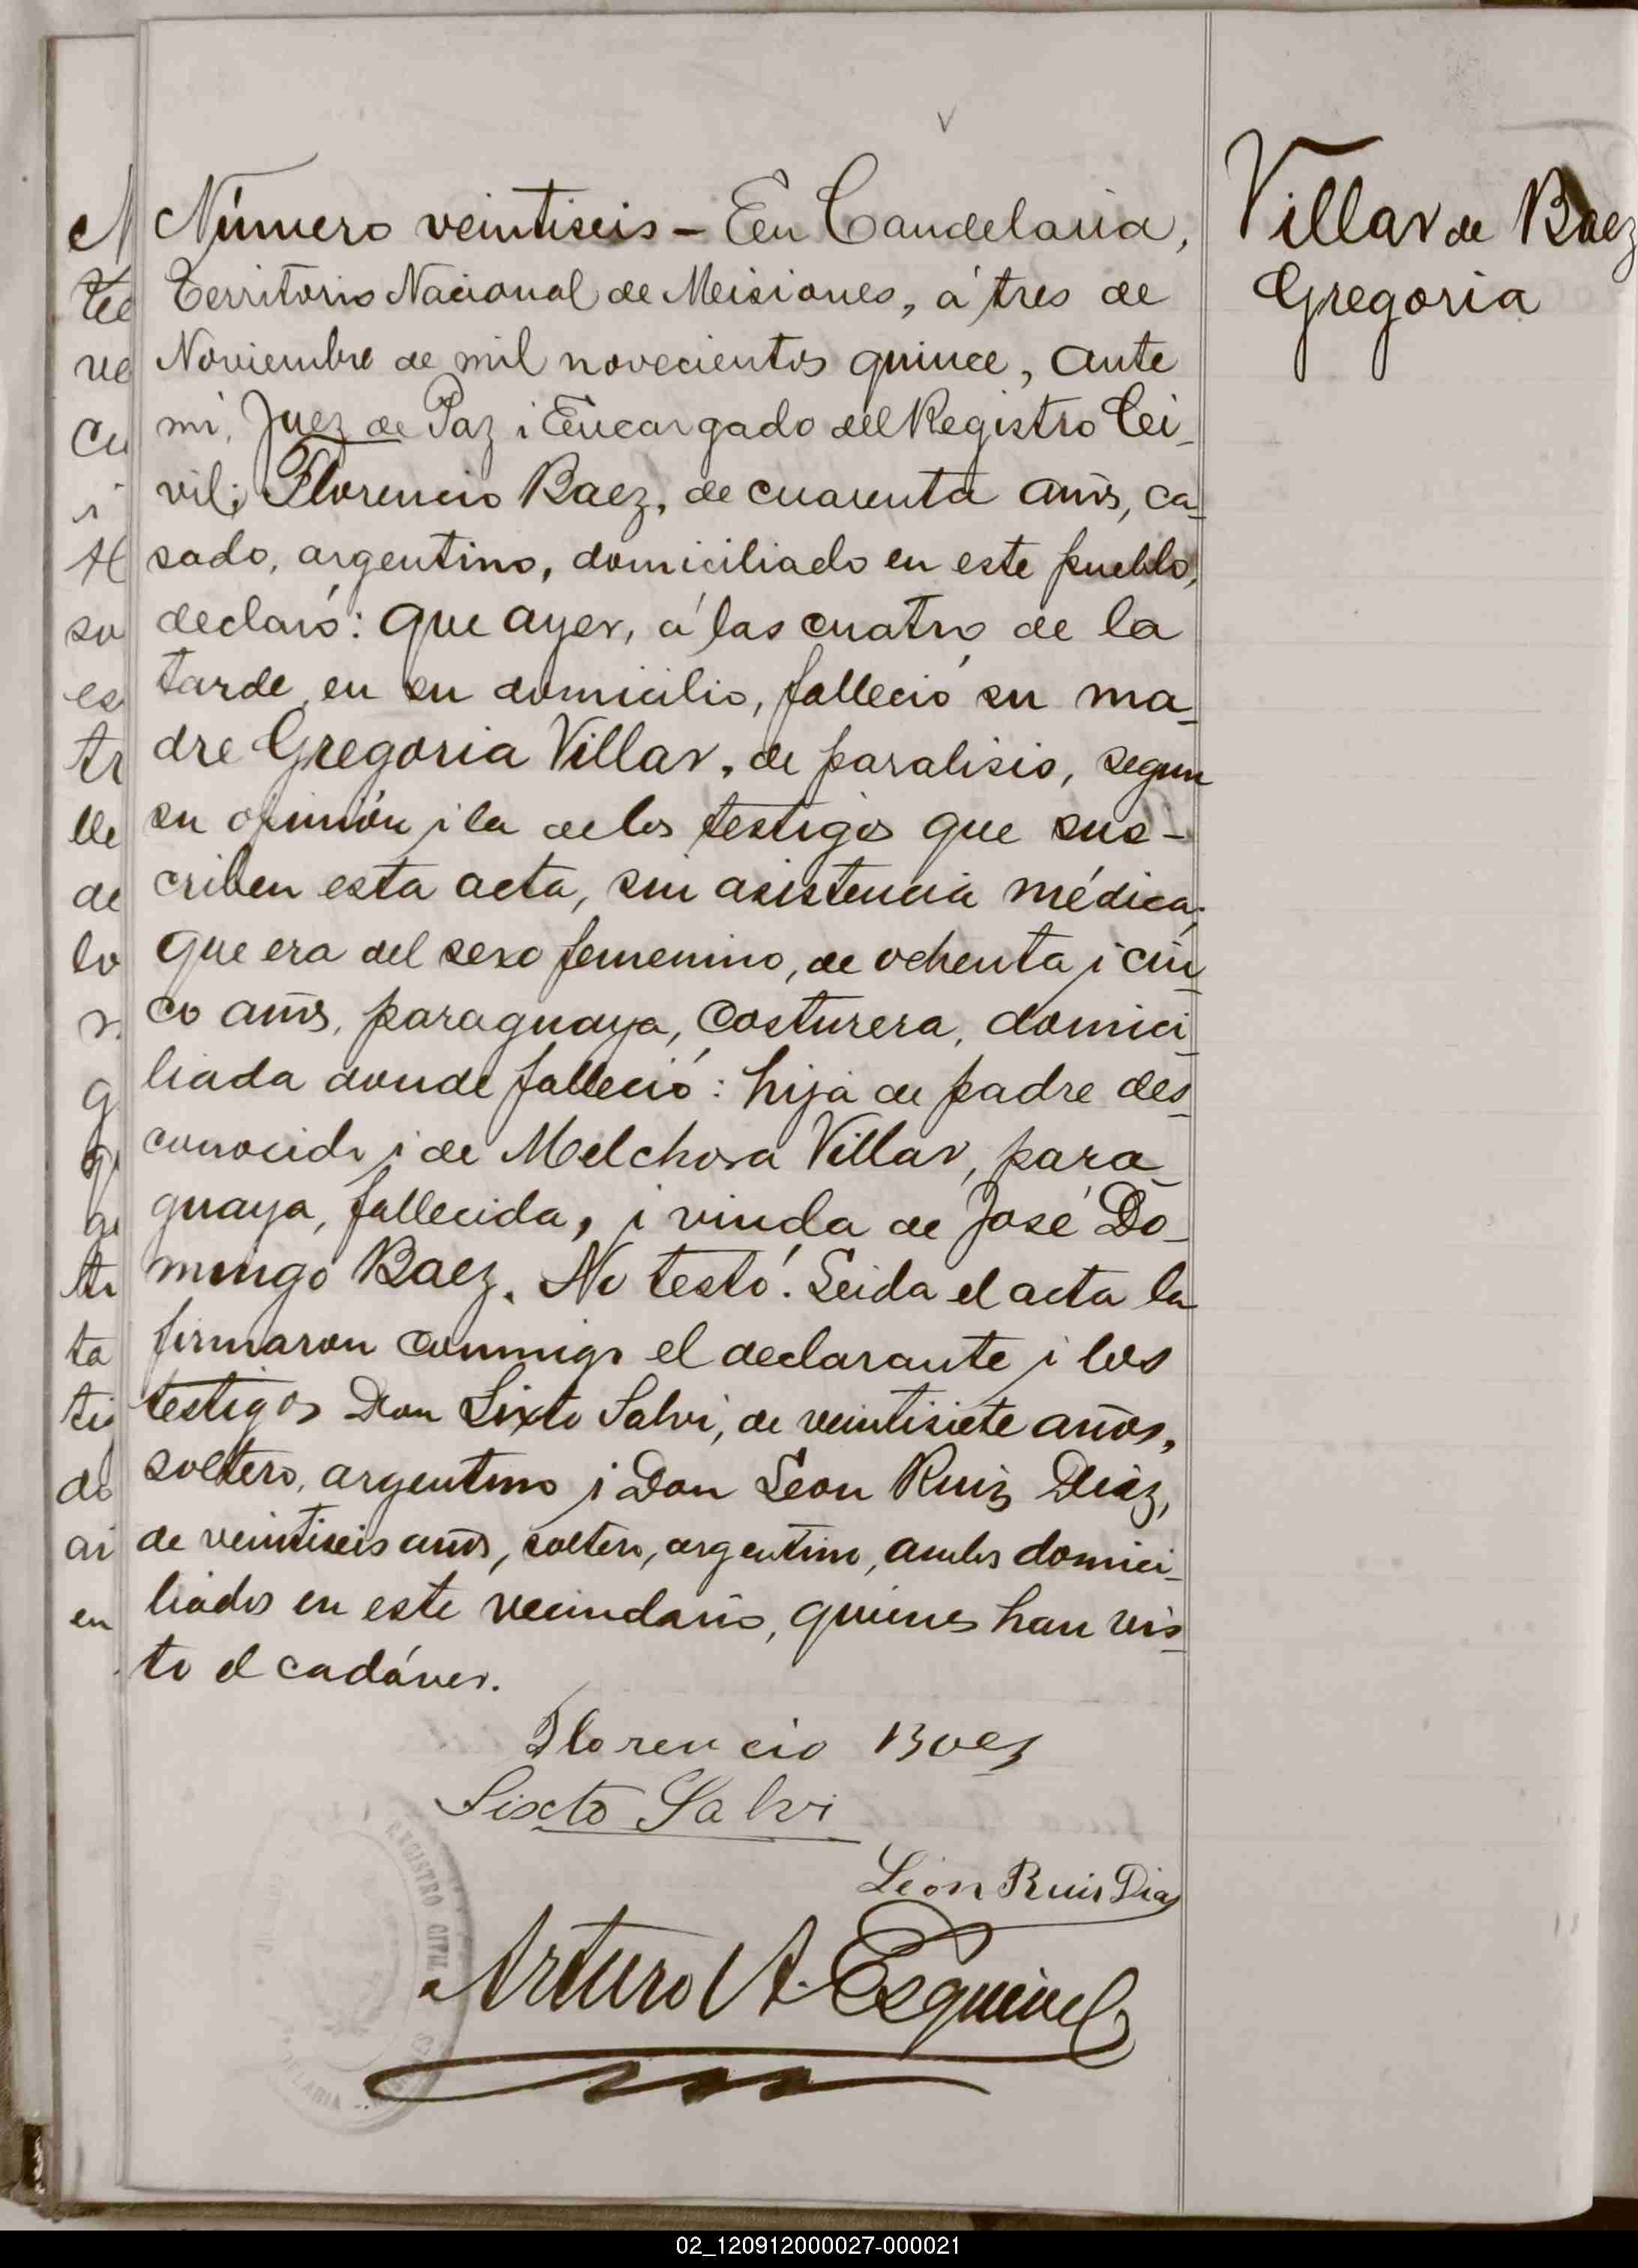 Villar de Baez
Gregoria
Número veintiseis - En Candelaria,
Territorio Nacional de Misiones, á tres de
Noviembre de mil novecientos quince, ante
mi, Juez de Paz i Encargado del Registro Ci-
vil; Florencio Baez, de cuarenta años, ca-
sado, argentino, domiciliado en este pueblo,
declaró: que ayer, á las cuatro de la
tarde, en su domicilio, falleció su ma-
dre Gregoria Villar, de paralisis, segun
su opinión i la de los testigos que sus-
criben esta acta, sin asistencia médica;
que era del sexo femenino, de ochenta i cin-
co años, paraguaya, costurera, domici-
liada donde falleció: hija de padre des-
conocido i de Melchora Villar, para-
guaya, fallecida, i viuda de José Do-
mingo Baez. No testó. Leida el acta la
firmaron conmigo el declarante i los
testigos Don Sixto Salvi, de veintisiete años,
soltero, argentino i Don Leon Ruiz Diaz,
de veintiseis años, soltero, argentino, ambos domici-
liados en este vecindario, quienes han vis-
to el cadáver.
Florencio Baez
Sixto Salvi
León Ruis Dias
Arturo A. Esquivel
REGISTRO CIVIL
02_120912000027-000021